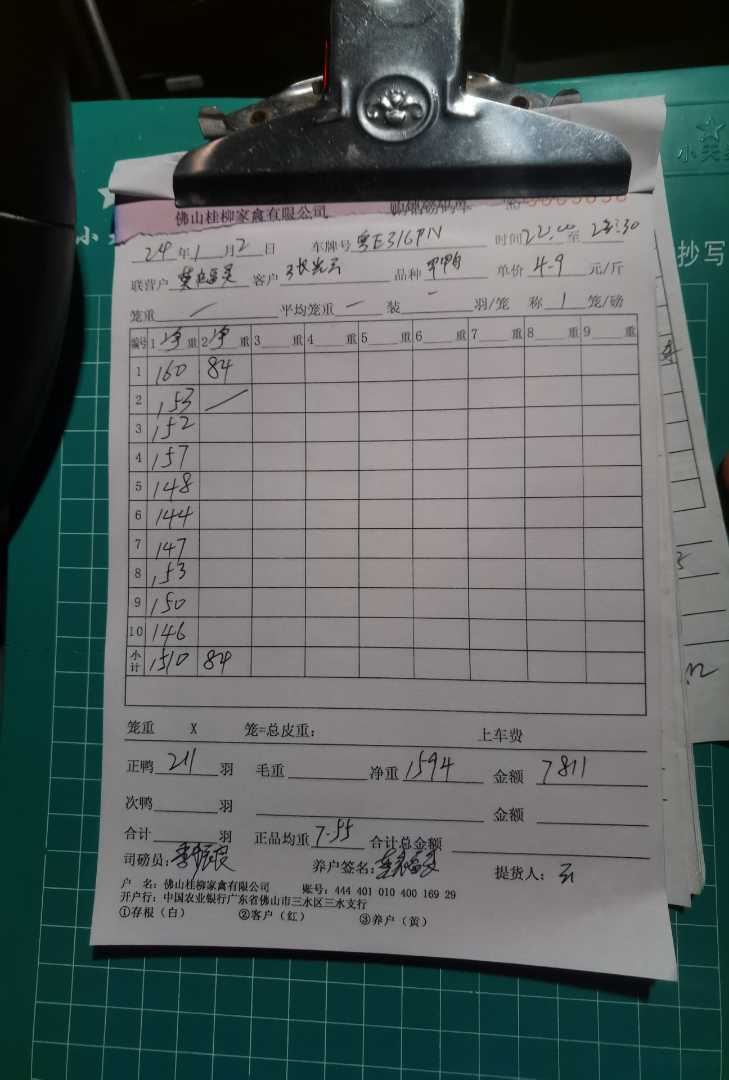 佛山桂柳家禽有限公司 购销磅码单 №
24年1月2日 车牌号 粤E316PN 时间22:00至22:30
联营户 客户 品种 单价 4.9 元/斤
笼重 — 平均笼重 — 装 — 羽/笼 称 1 笼/磅
编号 1 净 重 2 净 重 3 重 4 重 5 重 6 重 7 重 8 重 9 重
1 160 84
2 153
3 152
4 157
5 148
6 144
7 147
8 153
9 150
10 146
小计 1510 84
笼重 X 笼=总皮重: 上车费
正鸭 211 羽 毛重 净重 1594 金额 7811
次鸭 羽 金额
合计 羽 正品均重 7.55 合计总金额
司磅员: 养户签名: 提货人:
户 名: 佛山桂柳家禽有限公司 账号: 444 401 010 400 169 29
开户行: 中国农业银行广东省佛山市三水区三水支行
①存根（白） ②客户（红） ③养户（黄）
小天
小
抄写